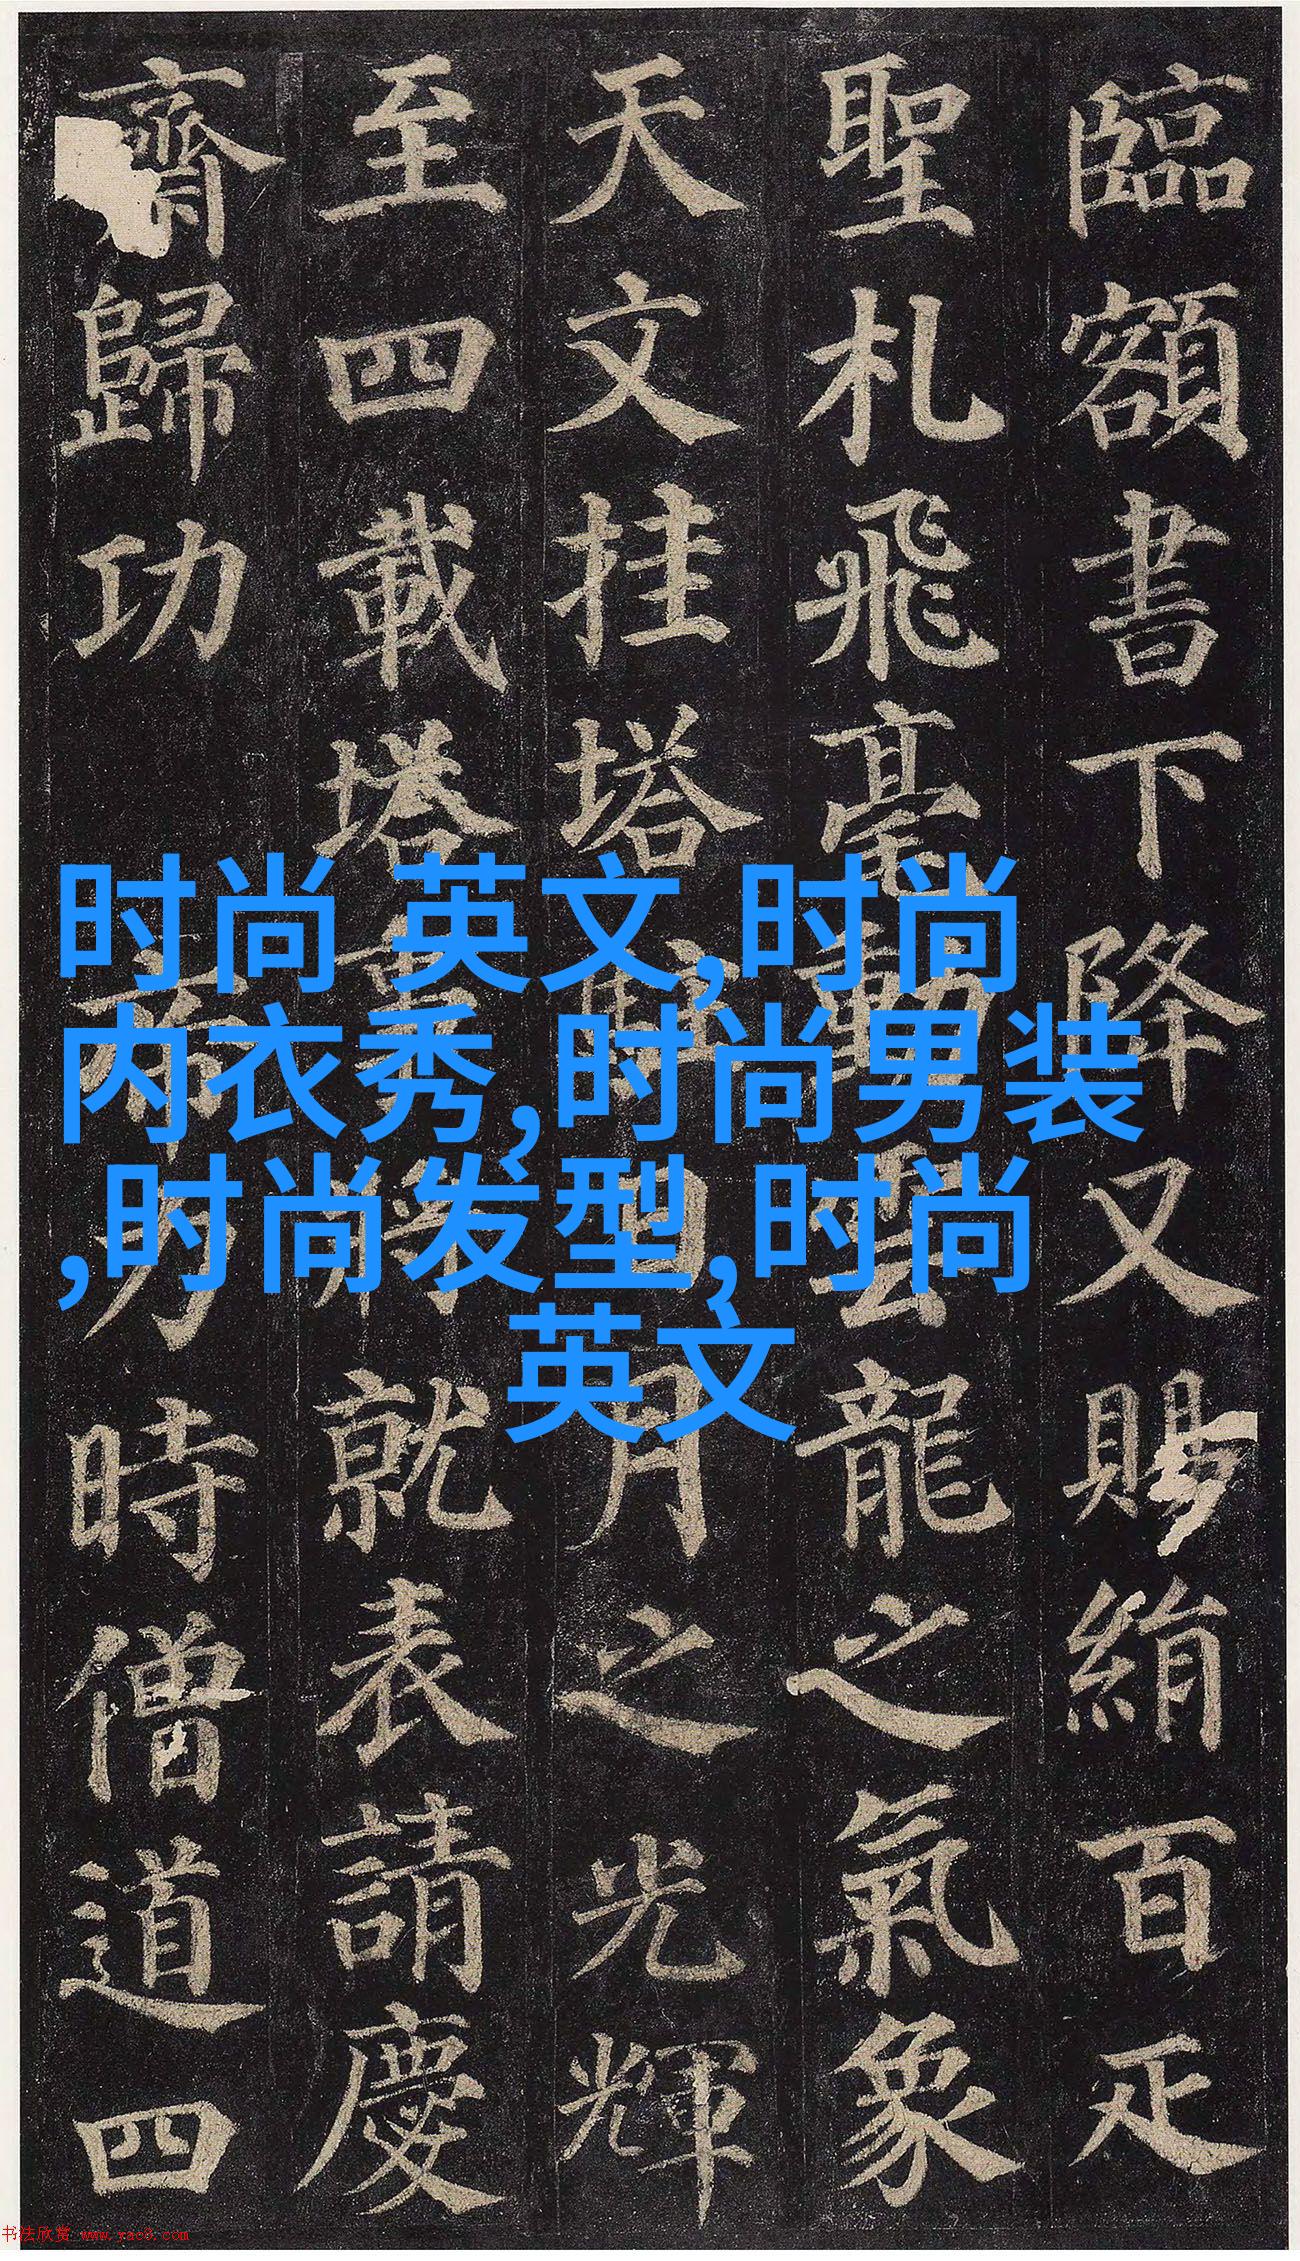 时尚 英文,时尚
内衣秀,时尚男装
,时尚发型,时尚
英文
臨額書下降又賜絹百疋
聖札飛毫動雲龍之氣象
天文挂塔駐日月之光輝
至四載塔事將就表請慶
齋歸功 帝力時僧道四
书法欣赏 www.yac8.com